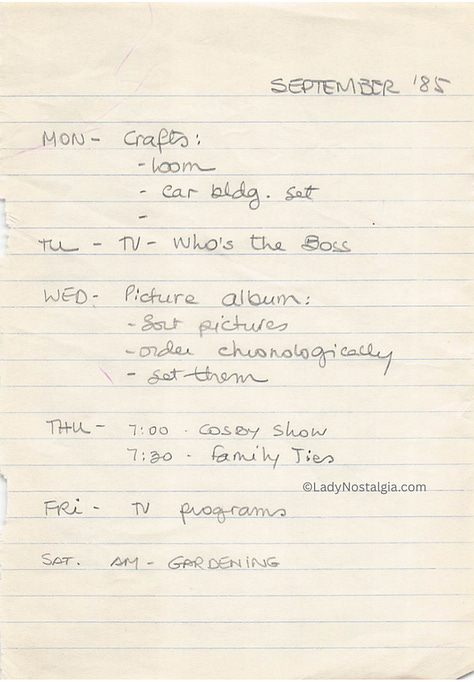 SEPTEMBER '85
MON - Crafts:
- loom
- car bldg. set
-
TU - TV - Who's the Boss
WED - Picture album:
- Sort pictures
- order chronologically
- set them
THU - 7:00 - COSBY Show
7:30 - Family Ties
©LadyNostalgia.com
FRI - TV programs
SAT. AM - GARDENING